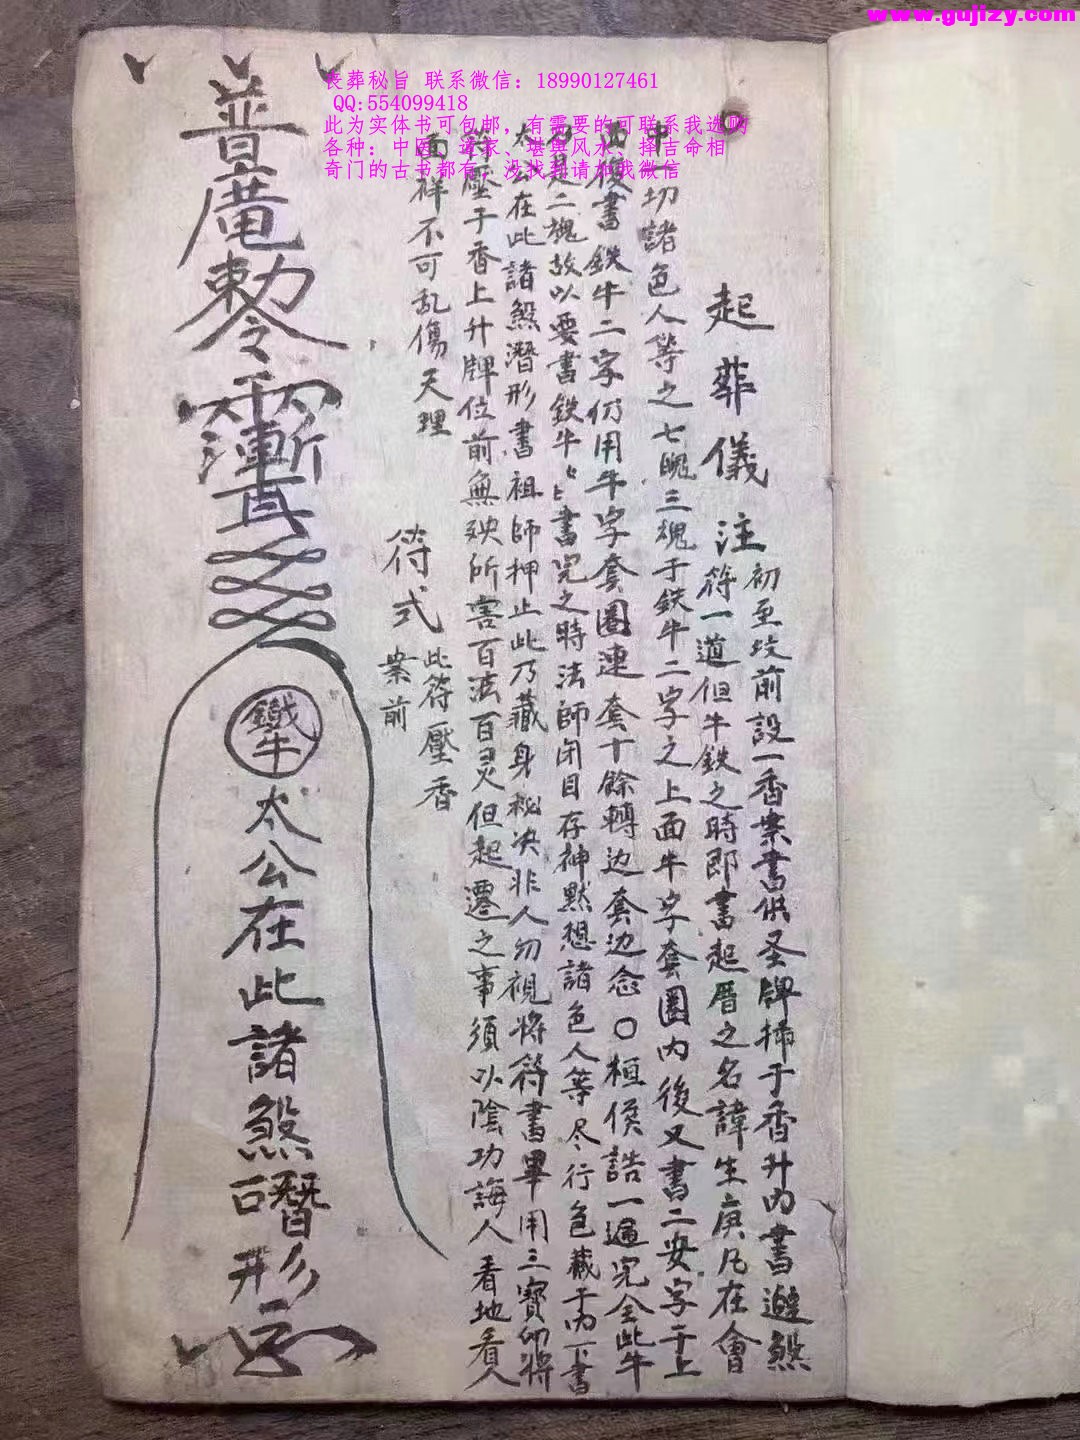 www.gujizy.com
丧葬秘旨 联系微信：18990127461
QQ:554099418
此为实体书可包邮，有需要的可联系我选购
各种：中医、道家、堪舆风水、择吉命相
奇门的古书都有，没找到请加我微信
起葬儀
注
初至坟前設一香案書供圣牌插于香升内書避煞
符一道但牛鉄之時即書起厝之名諱生庚凡在會
中一切諸色人等之七魄三魂于鉄牛二字之上面牛字套圈内後又書二安字于上
面後書鉄牛二字仍用牛字套圈連套十餘轉边套边念〇桓侯誥一遍完全此牛
是二塊故以要書鉄牛書完之時法師闭目存神黙想諸色人等尽行色藏于内下書
太公在此諸煞潛形書祖師押止此乃藏身秘决非人勿視將符書畢用三寳印將
符壓于香上升牌位前無殃所害百法百灵但起遷之事須以陰功誨人看地看人
面祥不可乱傷天理
符式
此符壓香
案前
普庵勅令
鐵牛
太公在此諸煞潛形